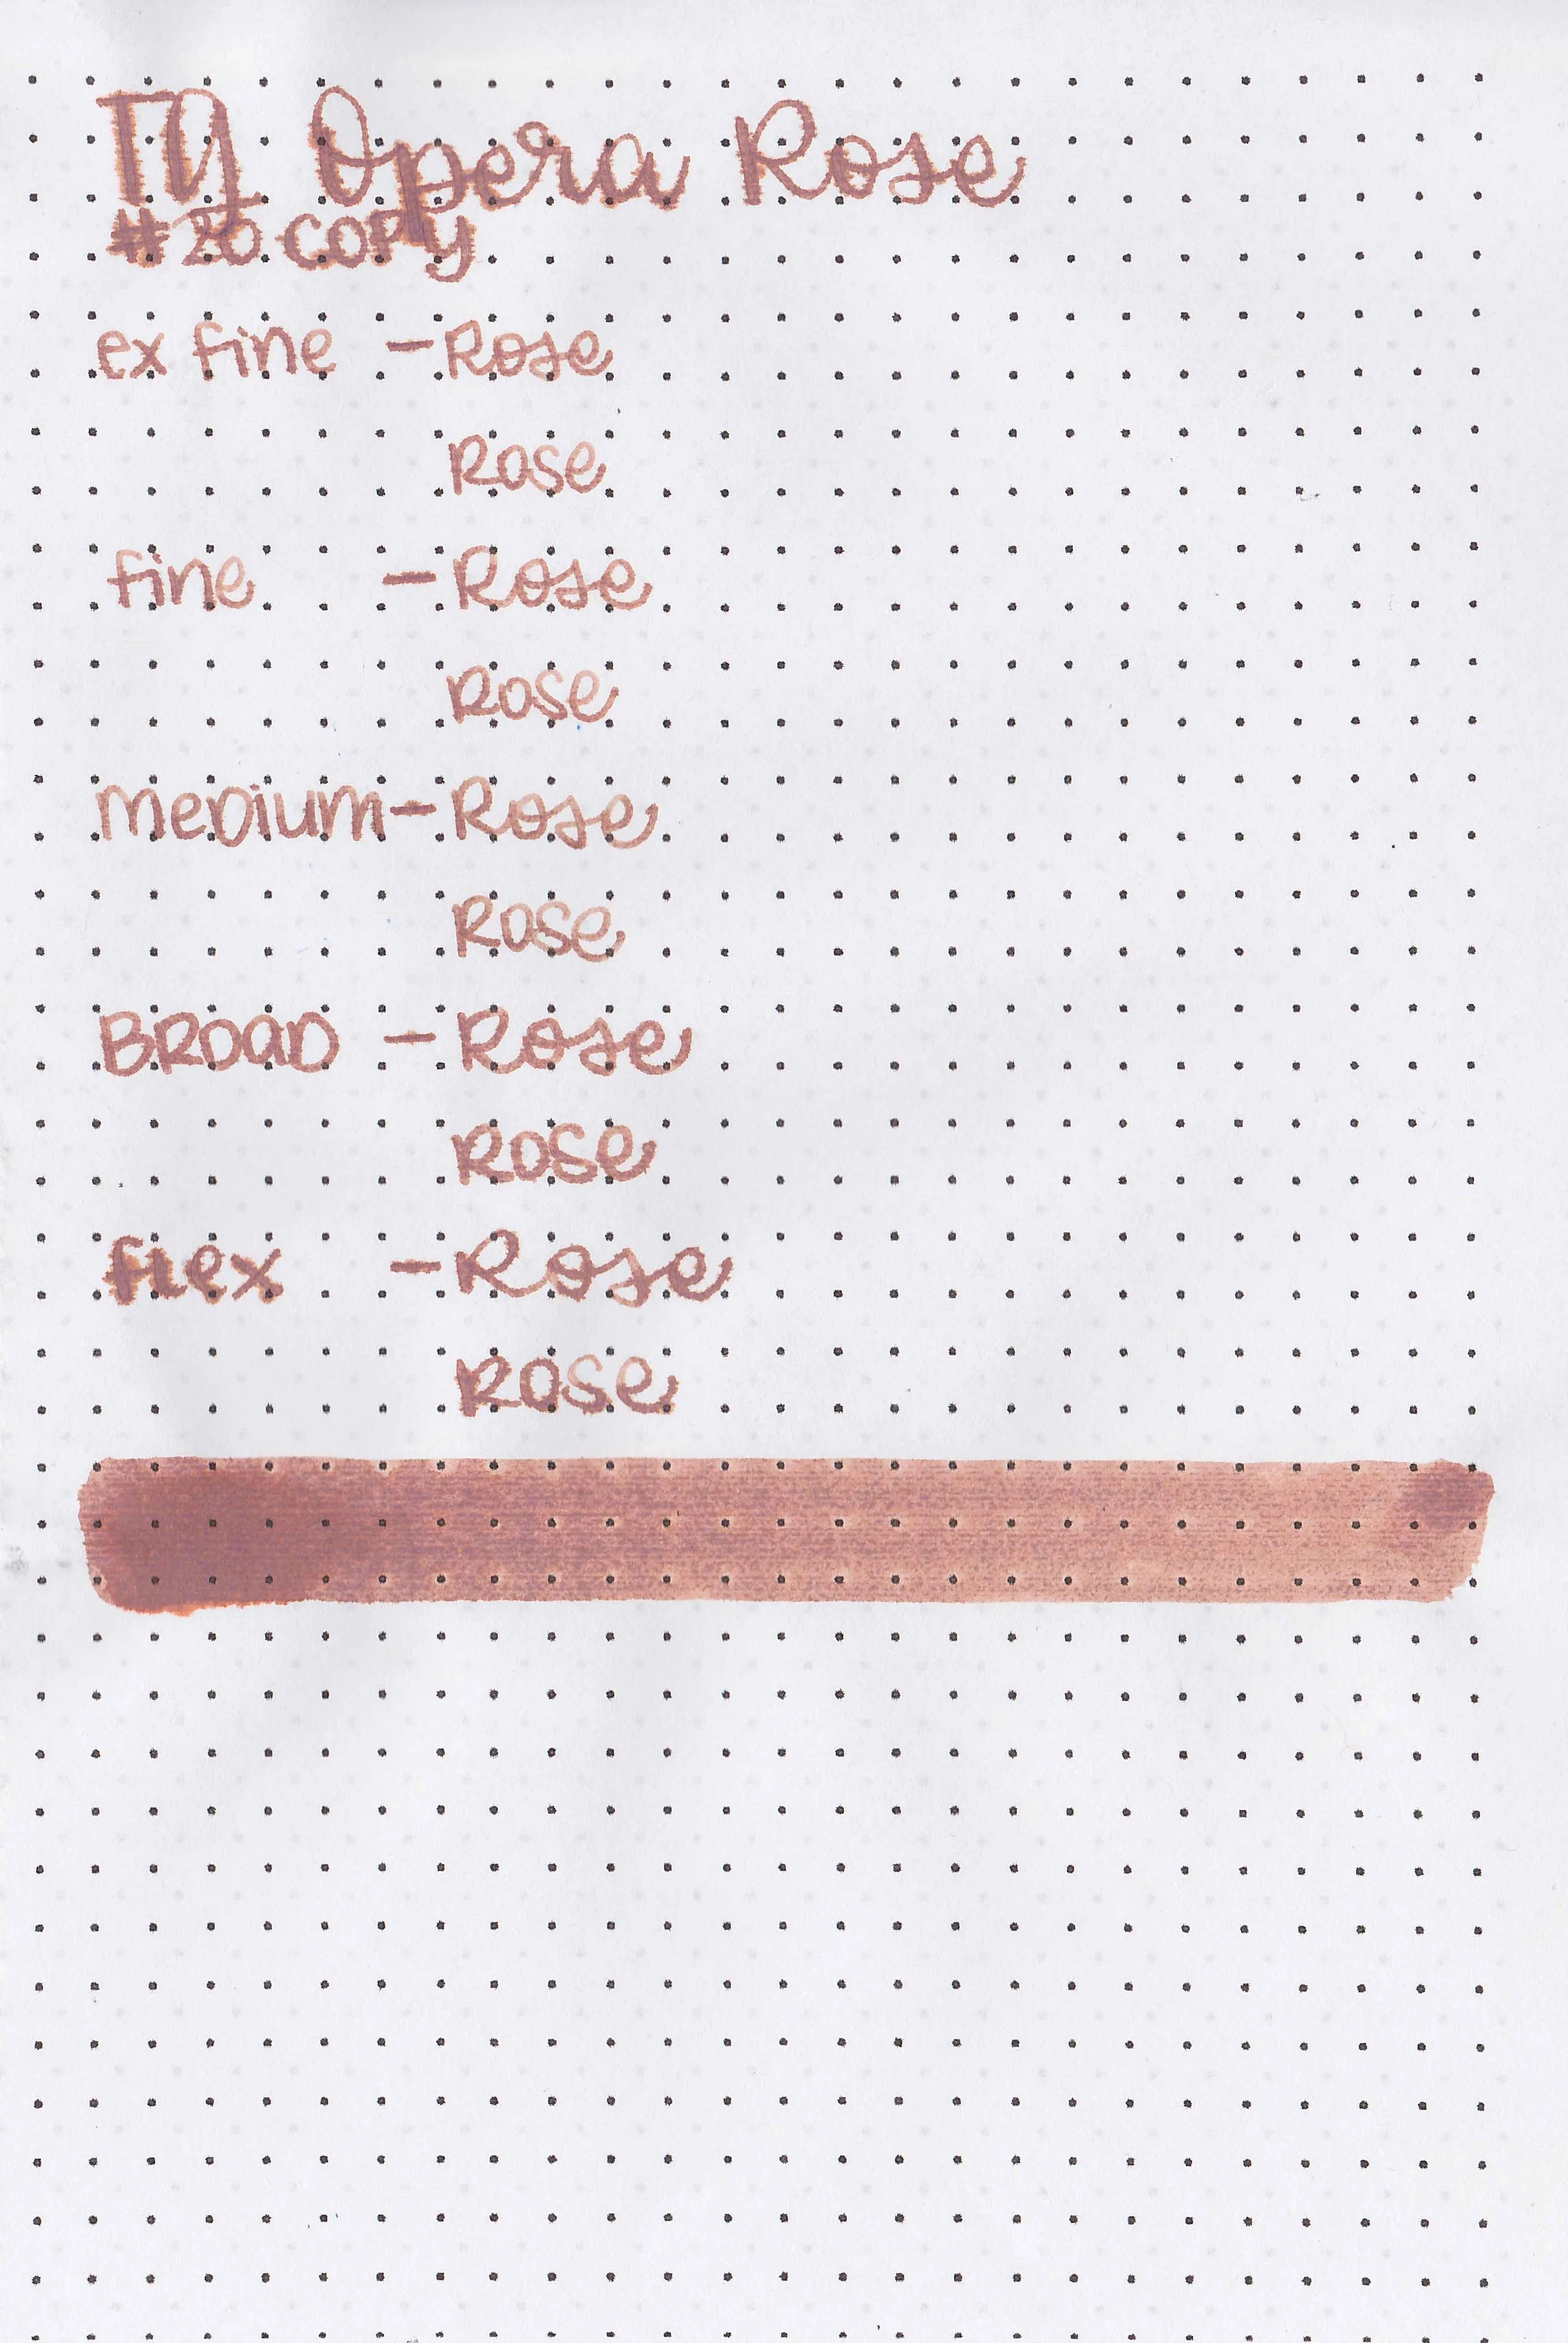 TG Opera Rose
#20 COPY
ex fine - Rose
Rose
fine - Rose
Rose
Medium - Rose
Rose
BROAD - Rose
Rose
flex - Rose
Rose